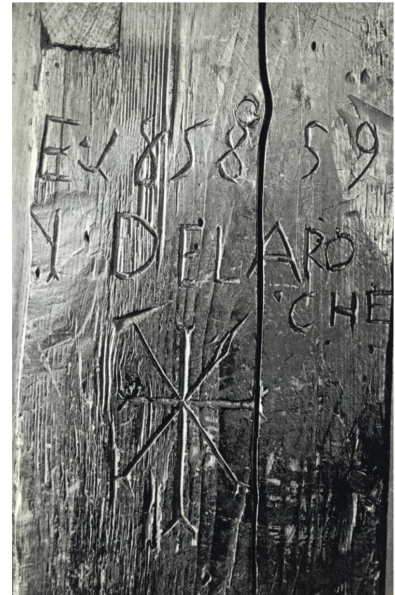 E 1858 59
Y DELARO
CHE